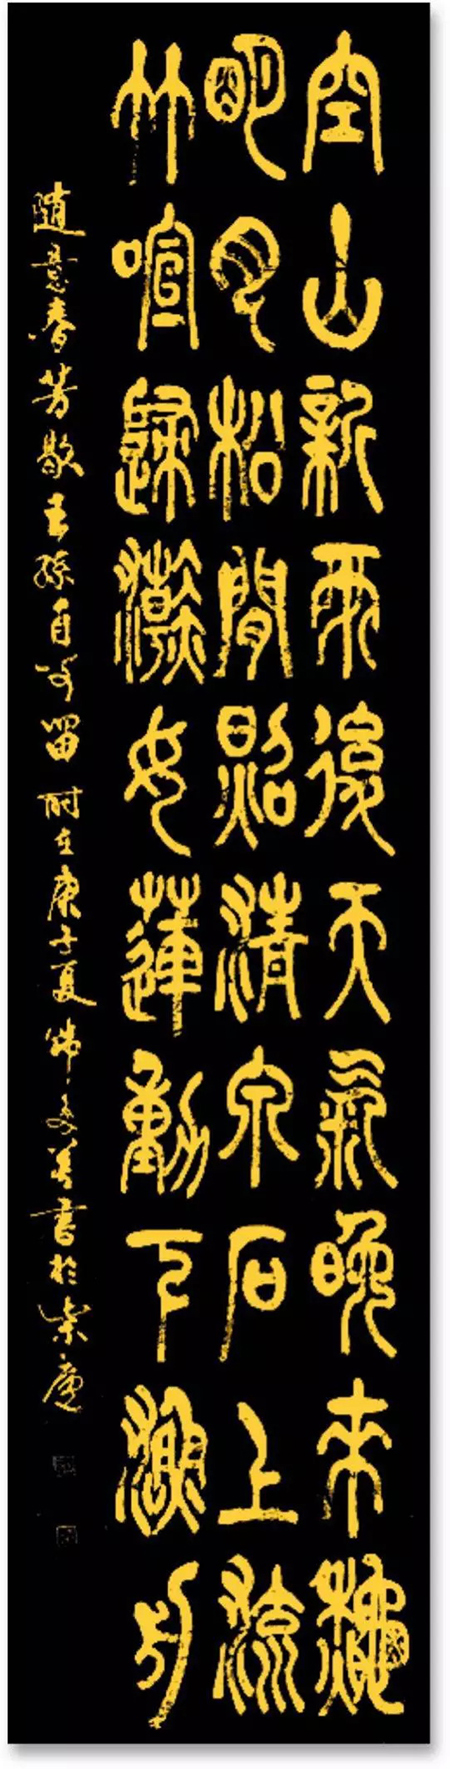 空山新雨後天氣晚來龝
明月松間照清泉石上流
竹喧歸澣女蓮動下漁舟
随意春芳歇王孫自可留 时在庚子夏 書於庵